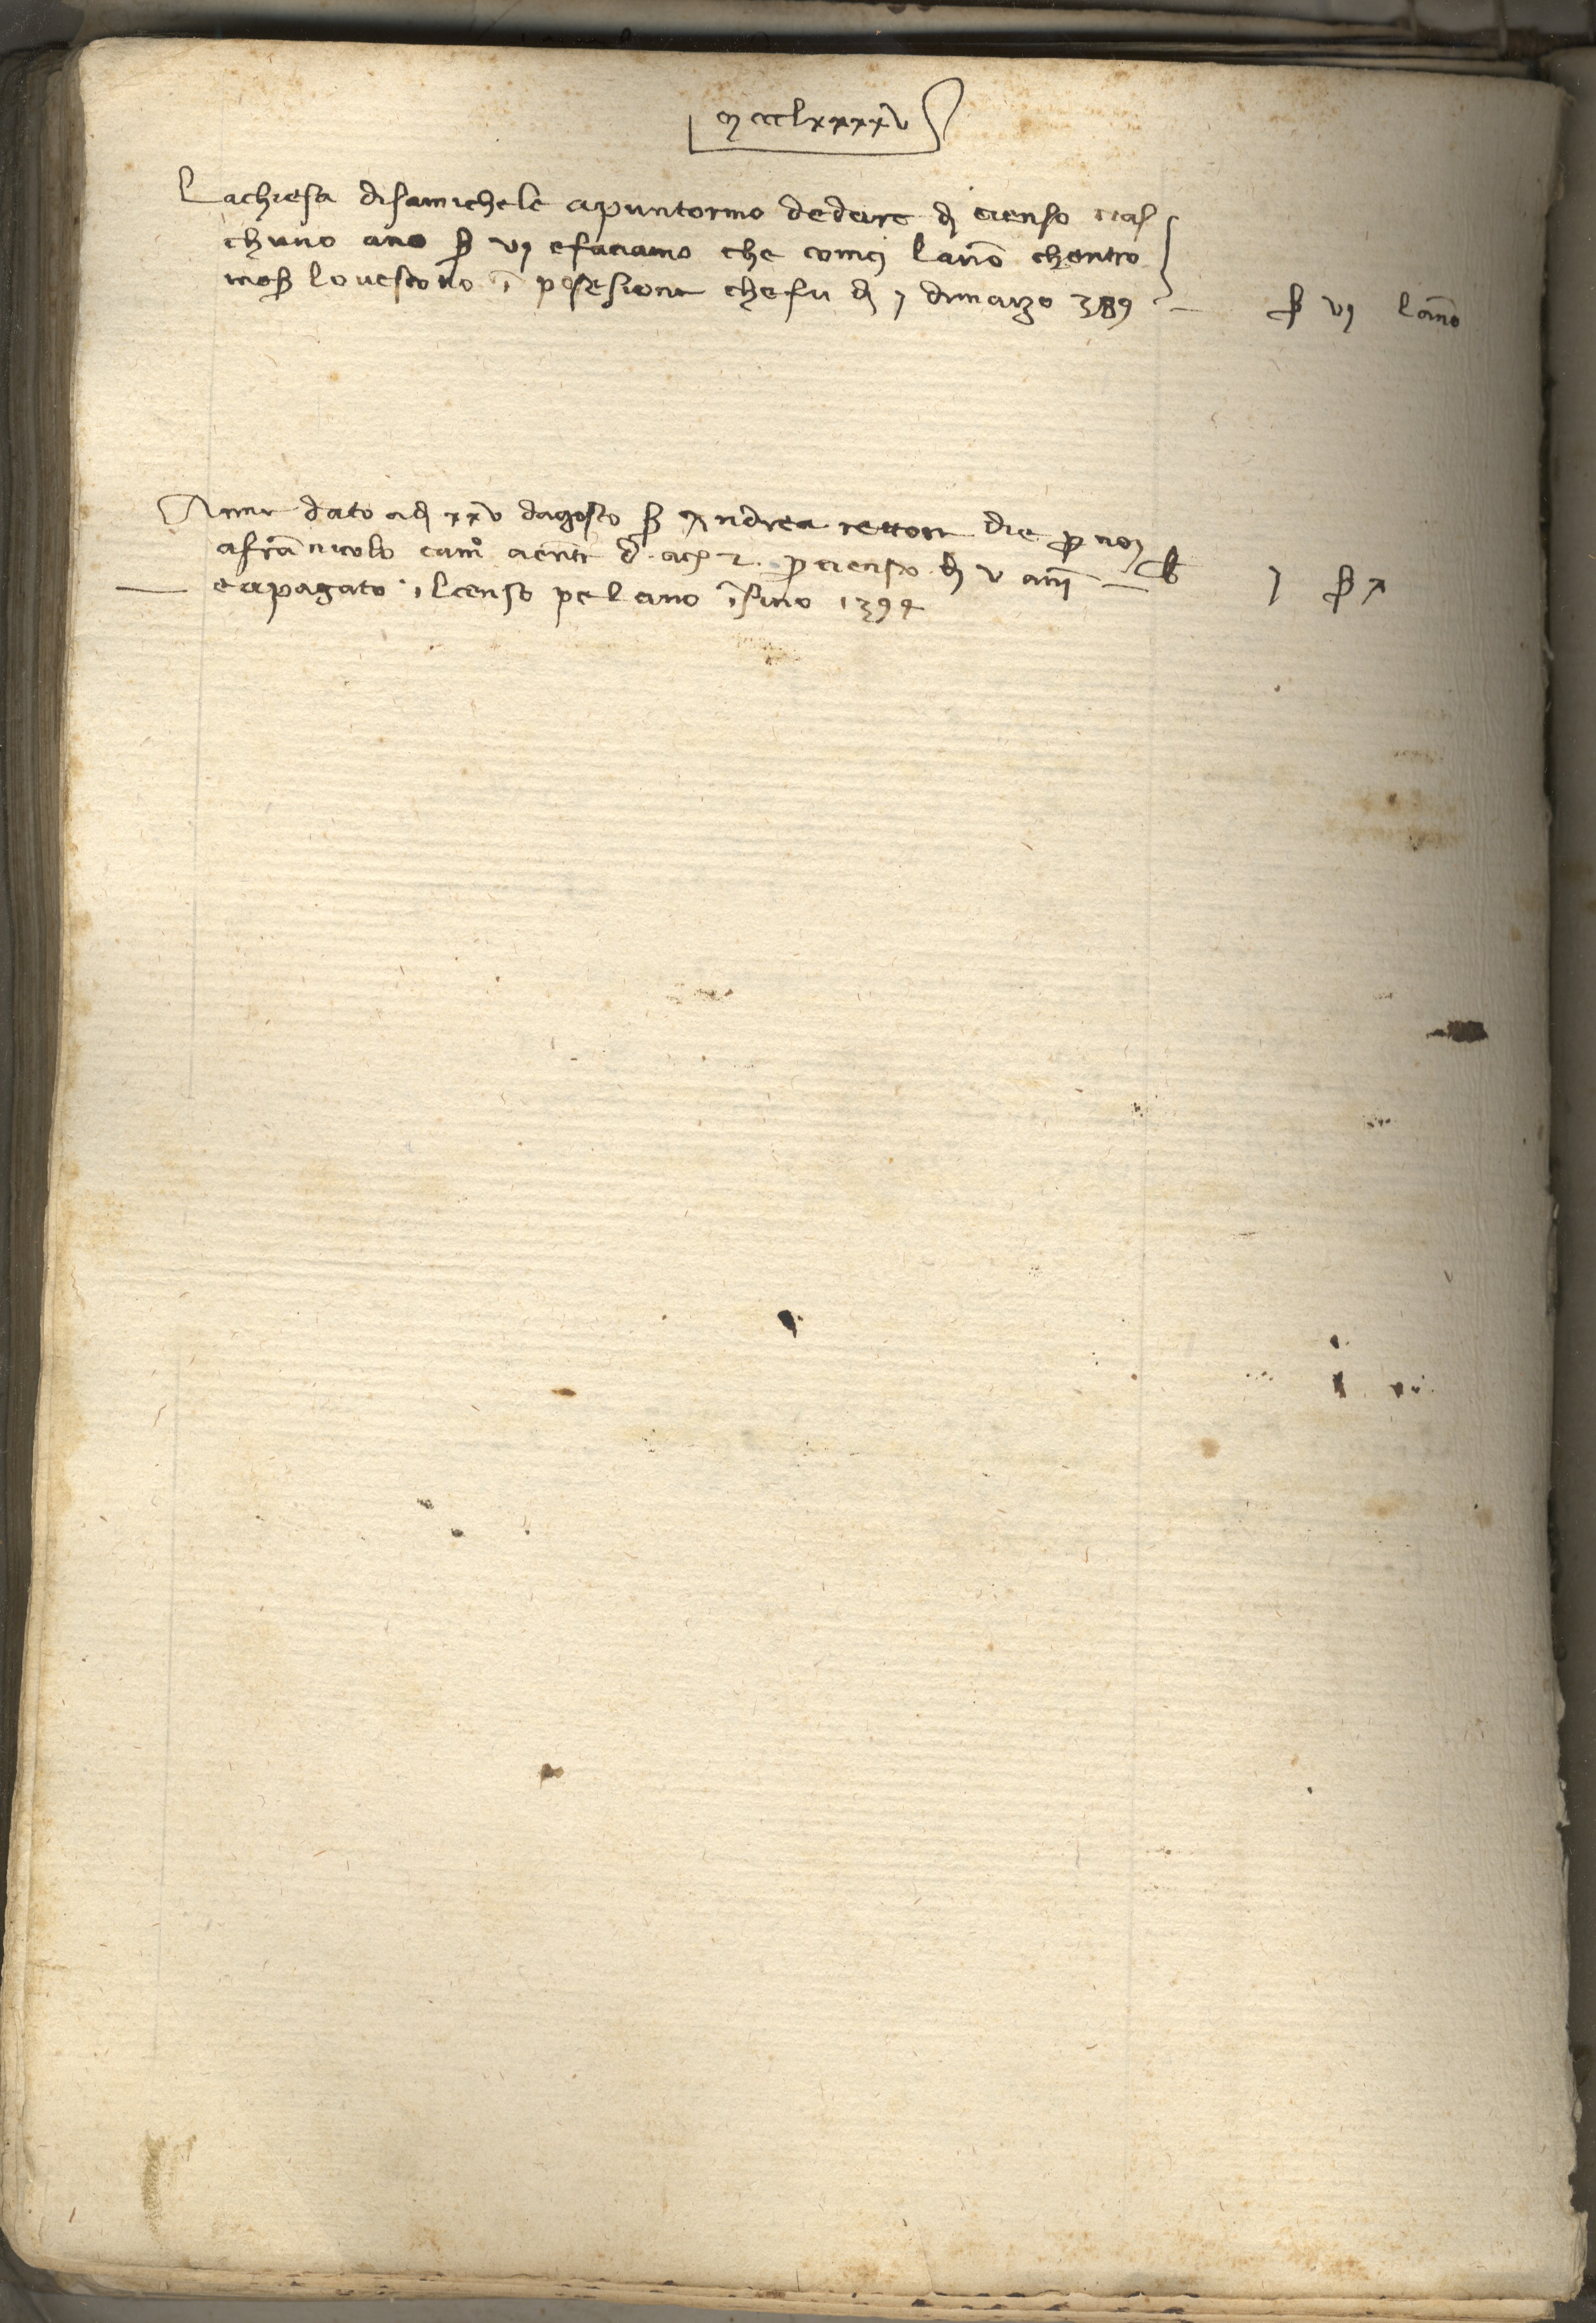 mccclxxxxv
Lachiesa disamichele apuntormo dedare di cienso cias
chuno ano ß vj efaciamo che comcj lanno chentro
mess lovescovo ī posesione chefu dj j dimarzo 389 ß vj lanno
Anne dato adj xxv dagosto ß Andrea rettore die p noj
afrā nicolo cam° acte 2. p cienso dj v anj lb j ß x
eapagato ilcenso pe lano īsino 1394